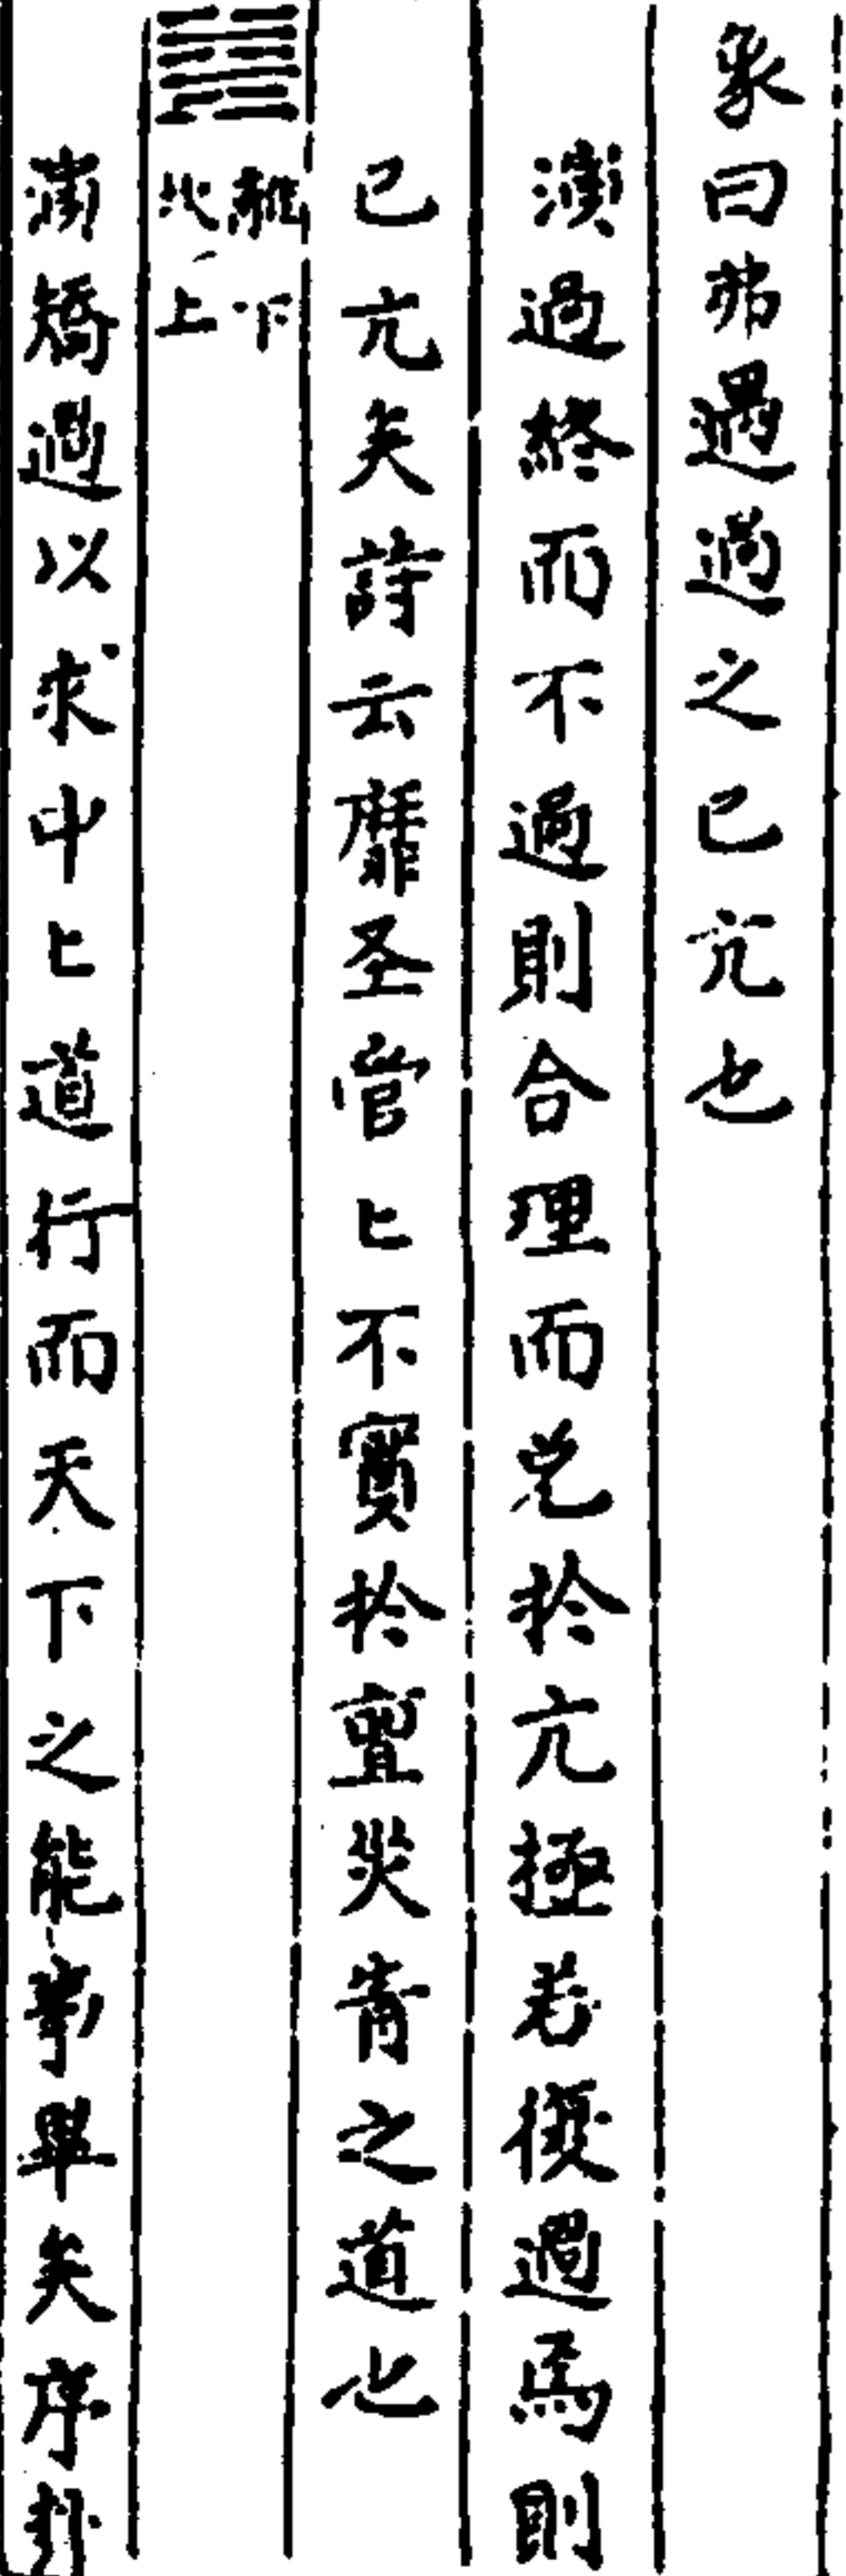 象曰弗遇過之已亢也
演過終而不過則合理而免於亢極若復過焉則
已亢矣詩云靡圣管〻不實於亶災眚之道也
䷾離下坎上
演矯過以求中〻道行而天下之能事畢矣序卦